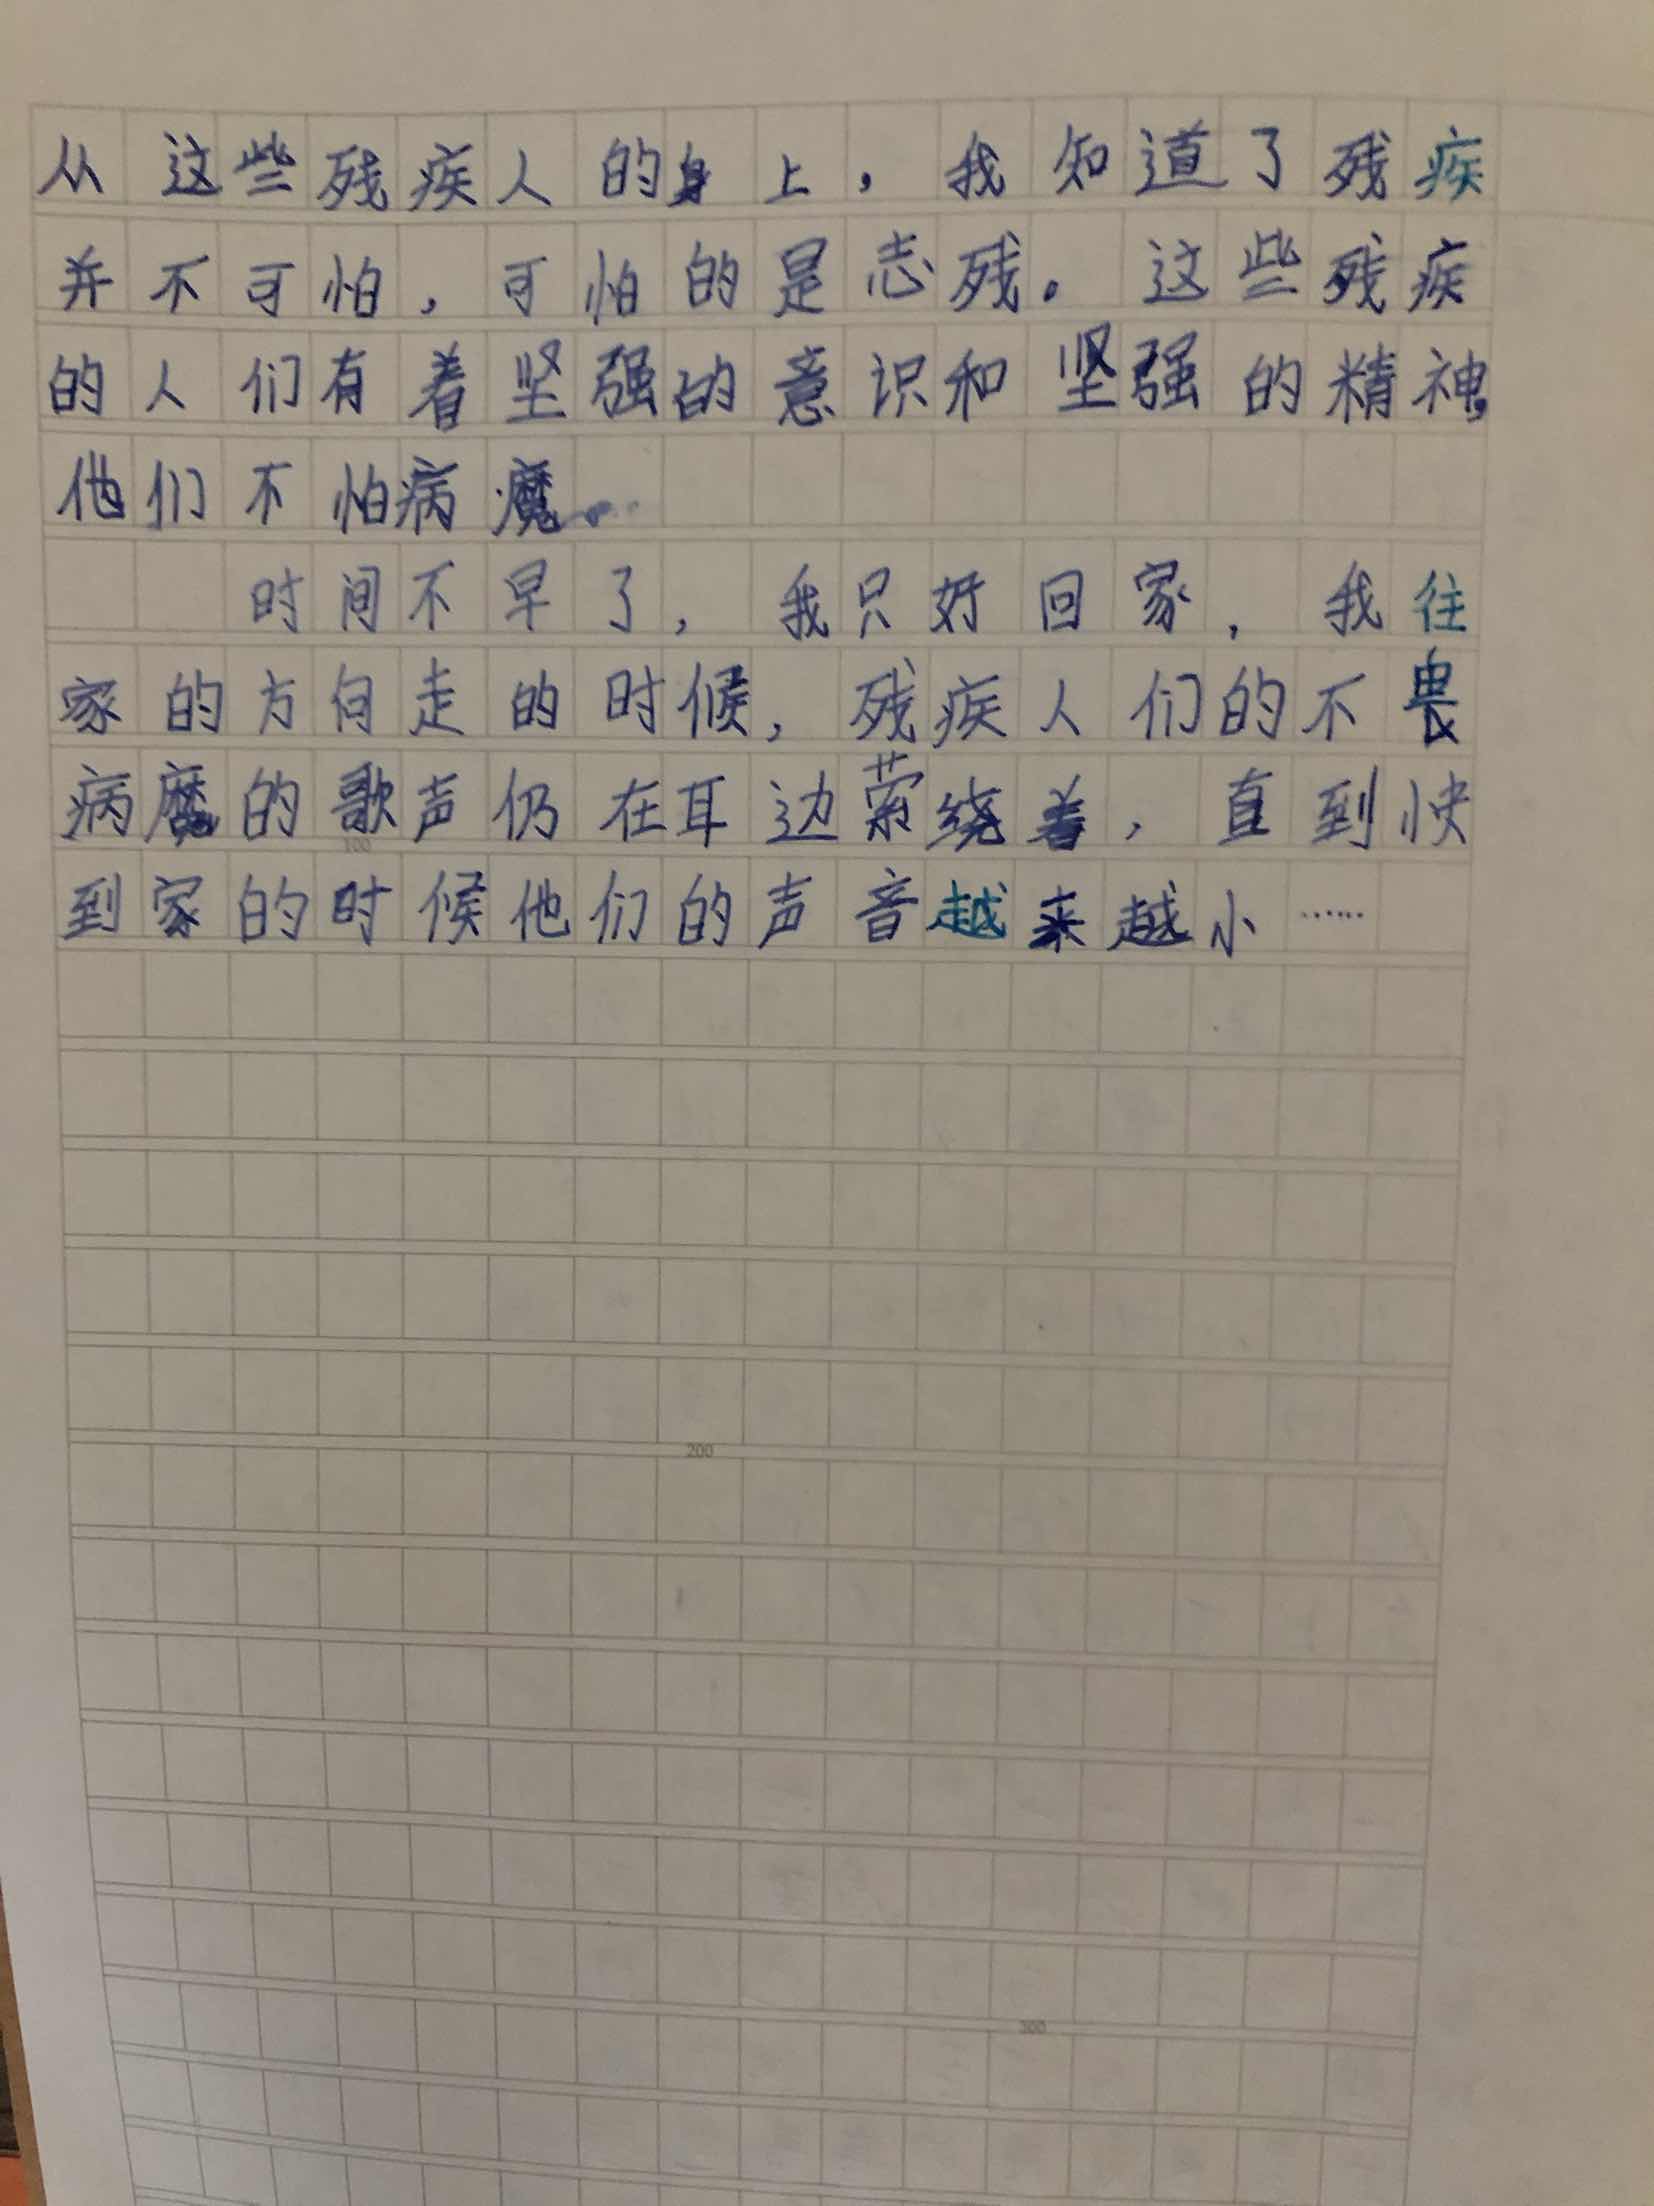 从这些残疾人的身上，我知道了残疾
并不可怕，可怕的是志残。这些残疾
的人们有着坚强的意识和坚强的精神，
他们不怕病魔。
时间不早了，我只好回家，我往
家的方向走的时候，残疾人们的不畏
病魔的歌声仍在耳边萦绕着，直到快
100
到家的时候他们的声音越来越小……
200
300